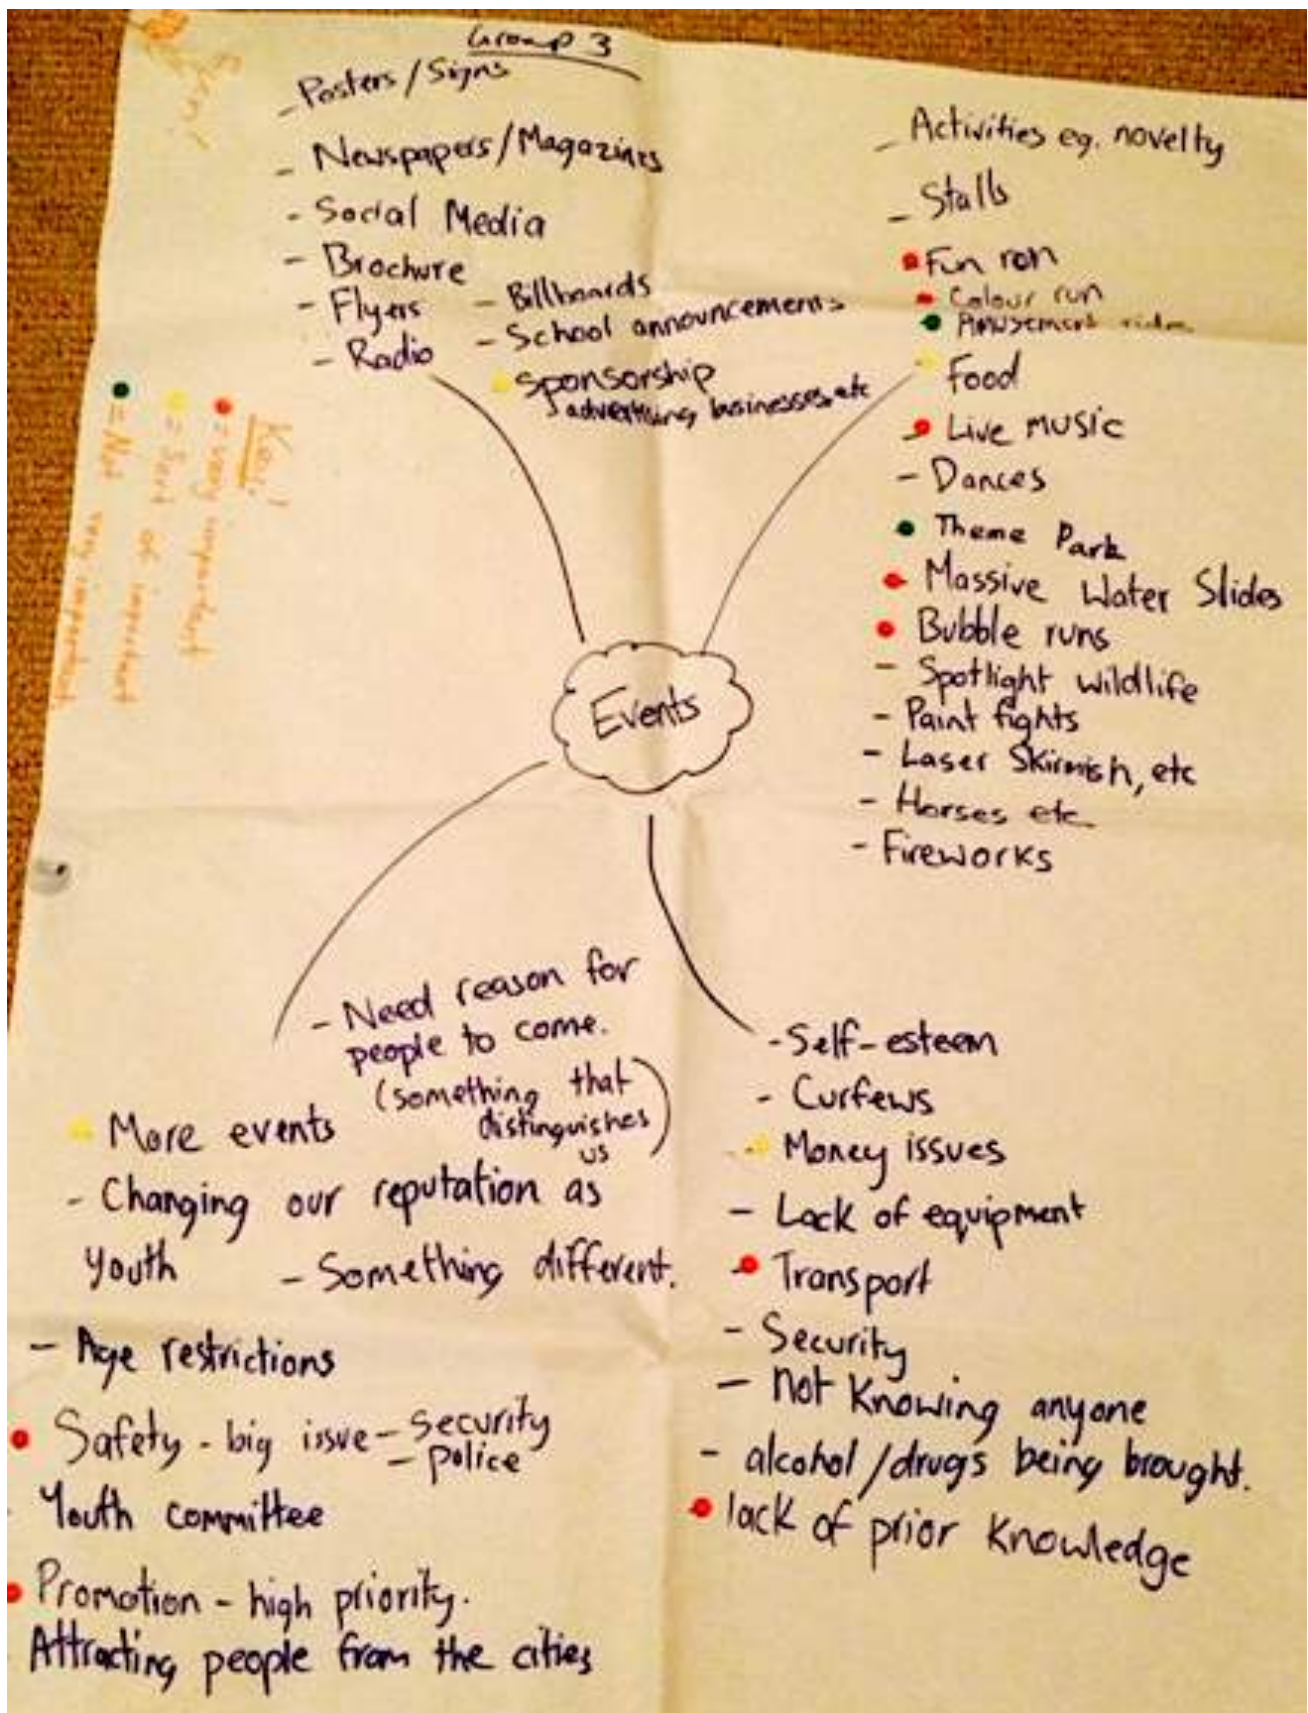 Group 3
- Posters / Signs
- Newspapers / Magazines
- Social Media
- Brochure
- Flyers
- Radio
- Billboards
- School announcements
Sponsorship
advertising businesses, etc
- Activities eg. novelty
- Stalls
Fun run
Colour run
Amusement rides
Food
- Live music
- Dances
Theme Park
Massive Water Slides
Bubble runs
- Spotlight wildlife
- Paint fights
- Laser Skirmish, etc
- Horses etc.
- Fireworks
= very important
= Sort of important
= Not very important
Events
- Need reason for
people to come.
(something that
distinguishes
us)
More events
- Changing our reputation as
youth
- Something different.
- Age restrictions
Safety - big issue - security
- police
Youth committee
Promotion - high priority.
Attracting people from the cities
- Self-esteem
- Curfews
- Money issues
- Lack of equipment
- Transport
- Security
- not knowing anyone
- alcohol / drugs being brought.
lack of prior knowledge